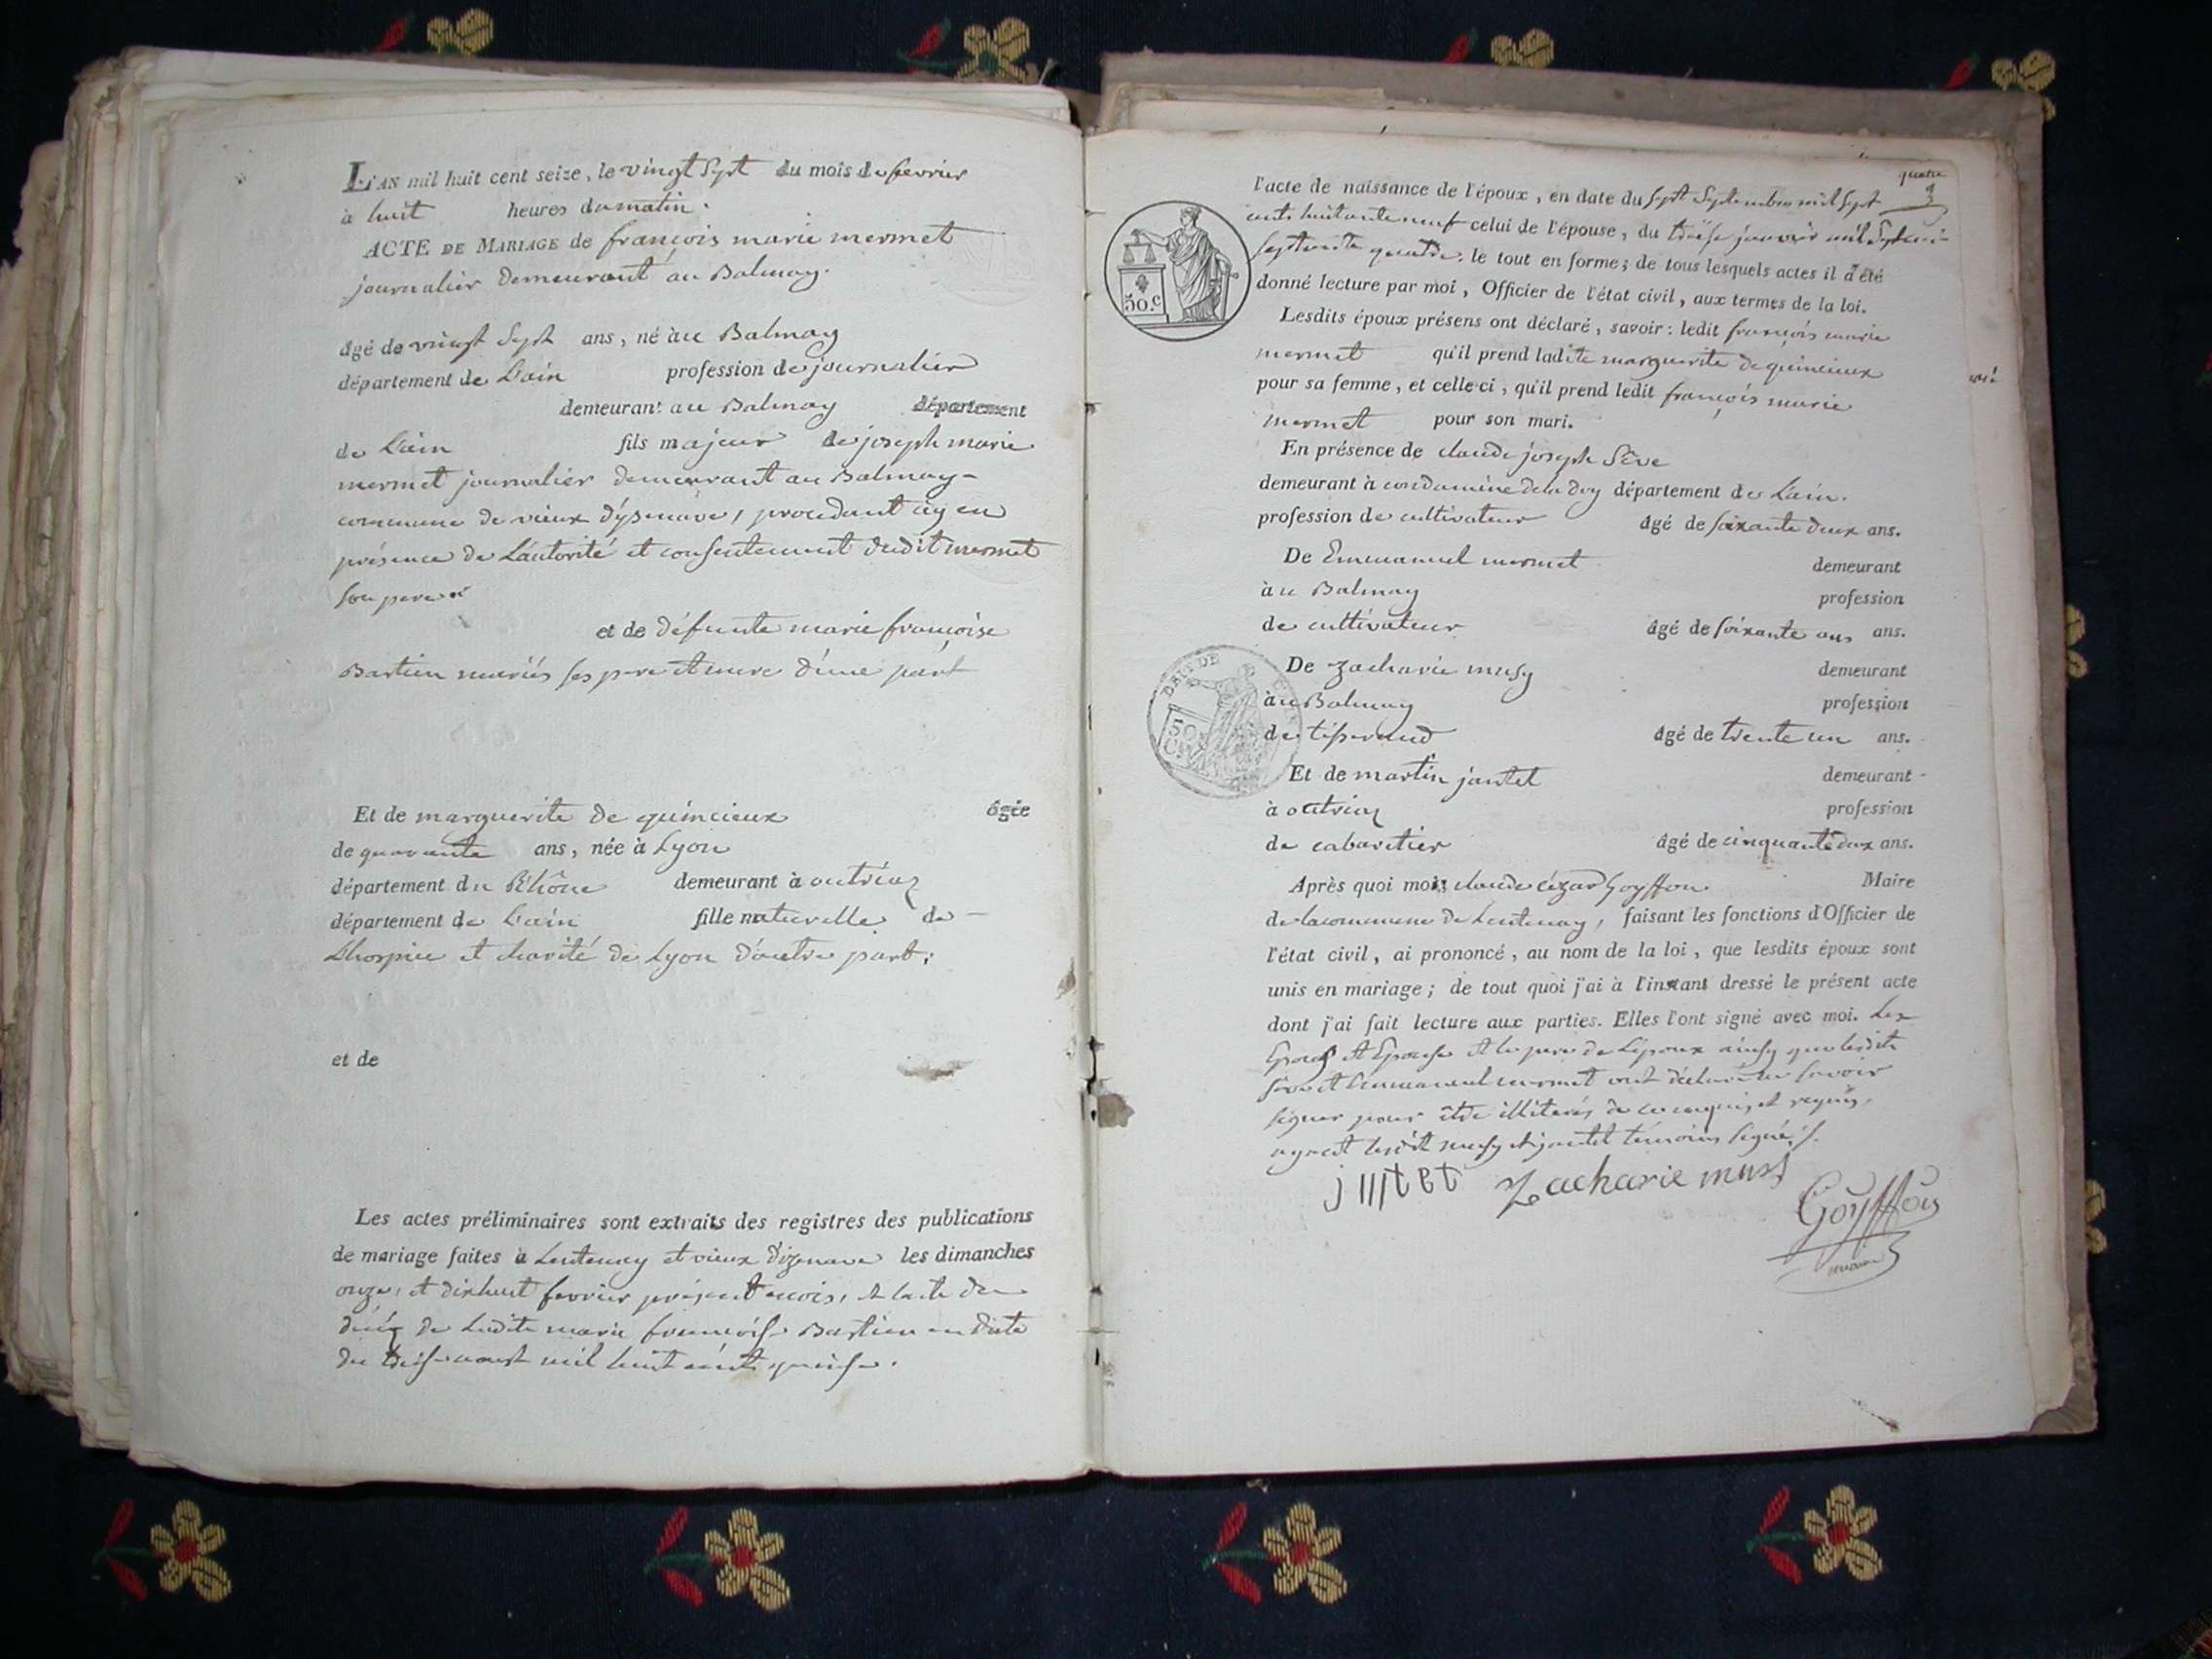 L'AN mil huit cent seize, le vingt sept du mois de fevrier
à huit heures du matin.
ACTE DE MARIAGE de françois marie mermet
journalier demeurant au Balmay.
âgé de vingt sept ans, né à au Balmay
département de L'ain profession de journalier
demeurant au Balmay département
de L'ain fils majeur de joseph marie
mermet journalier demeurant au Balmay
commune de vieux d'ysenave, procedant icy en
présence de L'autorité et consentement dudit mermet
son pere
et de défunte marie françoise
Bastien mariés ses pere et mere d'une part
Et de marguerite de quincieux âgée
de quarante ans, née à Lyon
département du Rhône demeurant à outriaz
département de L'ain fille naturelle de
L'hospice et charité de Lyon d'autre part;
et de
Les actes préliminaires sont extraits des registres des publications
de mariage faites à Lentenay et vieux d'izenave les dimanches
onze, et dixhuit fevrier présent mois, et l'acte de
décéz de Ladite marie françoise Bastien en date
du treise aoust mil huit cent quinse.
quatre
l'acte de naissance de l'époux, en date du sept Septembre mil sept
cents huitante neuf celui de l'épouse, du treise janvier mil Sept cent
septente quatre. le tout en forme; de tous lesquels actes il a été
donné lecture par moi, Officier de l'état civil, aux termes de la loi.
50.c
Lesdits époux présens ont déclaré, savoir: ledit françois marie
mermet qu'il prend ladite marguerite de quincieux
pour sa femme, et celle-ci, qu'il prend ledit françois marie
mermet pour son mari.
En présence de claude joseph Sêve
demeurant à condamine de la doy département de L'ain.
profession de cultivateur âgé de soixante deux ans.
De Emmanuel mermet demeurant
à au Balmay profession
de cultivateur âgé de soixante ans ans.
De zacharie musy demeurant
à au Balmay profession
de tisserand âgé de trente un ans.
50
Et de martin jantet demeurant
à outriaz profession
de cabaretier âgé de cinquante deux ans.
Après quoi moi, claude cézar Goyffon Maire
de la commune de Lentenay, faisant les fonctions d'Officier de
l'état civil, ai prononcé, au nom de la loi, que lesdits époux sont
unis en mariage; de tout quoi j'ai à l'instant dressé le présent acte
dont j'ai fait lecture aux parties. Elles l'ont signé avec moi. Les
Epoux et Epouse et le pere de L'époux ainsy que lesdits
sève et Emmanuel mermet ont déclaré ne savoir
signer pour être illiterés de ce enquis et requis,
ayant lesdit musy et jantet témoins signés.
Zacharie musy
Goyffon
maire